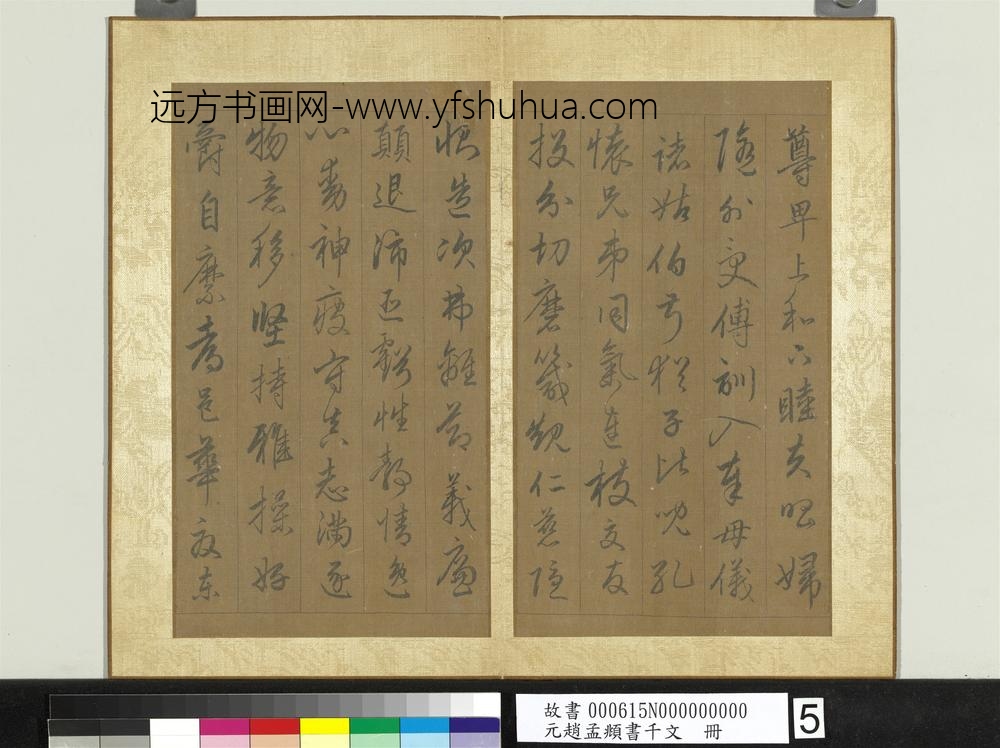 远方书画网-www.yfshuhua.com
尊卑上和下睦夫唱婦
随外受傅訓入奉母儀
諸姑伯叔猶子比兒孔
懷兄弟同氣連枝交友
投分切磨箴規仁慈隱
惻造次弗離節義廉
顛退沛匪虧性静情逸
心動神疲守真志滿逐
物意移堅持雅操好
爵自縻都邑華夏東
故書 000615N000000000
元趙孟頫書千文 冊
5